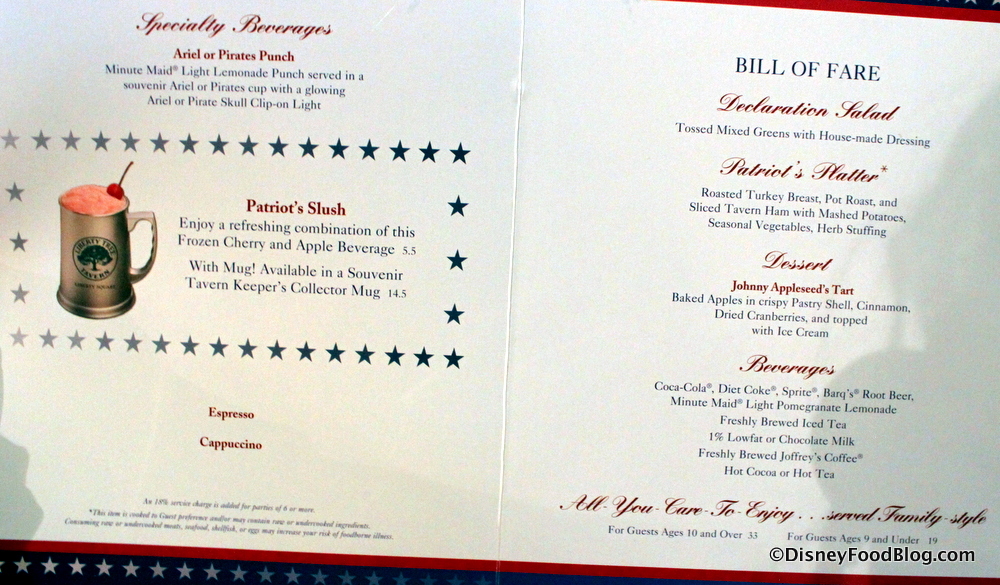 Specialty Beverages
Ariel or Pirates Punch
Minute Maid® Light Lemonade Punch served in a
souvenir Ariel or Pirates cup with a glowing
Ariel or Pirate Skull Clip-on Light
LIBERTY TREE
TAVERN
LIBERTY SQUARE
Patriot's Slush
Enjoy a refreshing combination of this
Frozen Cherry and Apple Beverage 5.5
With Mug! Available in a Souvenir
Tavern Keeper's Collector Mug 14.5
Espresso
Cappuccino
An 18% service charge is added for parties of 6 or more.
*This item is cooked to Guest preference and/or may contain raw or undercooked ingredients.
Consuming raw or undercooked meats, seafood, shellfish, or eggs may increase your risk of foodborne illness.
BILL OF FARE
Declaration Salad
Tossed Mixed Greens with House-made Dressing
Patriot's Platter*
Roasted Turkey Breast, Pot Roast, and
Sliced Tavern Ham with Mashed Potatoes,
Seasonal Vegetables, Herb Stuffing
Dessert
Johnny Appleseed's Tart
Baked Apples in crispy Pastry Shell, Cinnamon,
Dried Cranberries, and topped
with Ice Cream
Beverages
Coca-Cola®, Diet Coke®, Sprite®, Barq's® Root Beer,
Minute Maid® Light Pomegranate Lemonade
Freshly Brewed Iced Tea
1% Lowfat or Chocolate Milk
Freshly Brewed Joffrey's Coffee®
Hot Cocoa or Hot Tea
All-You-Care-To-Enjoy . . .served Family-style
For Guests Ages 10 and Over 33 For Guests Ages 9 and Under 19
©DisneyFoodBlog.com